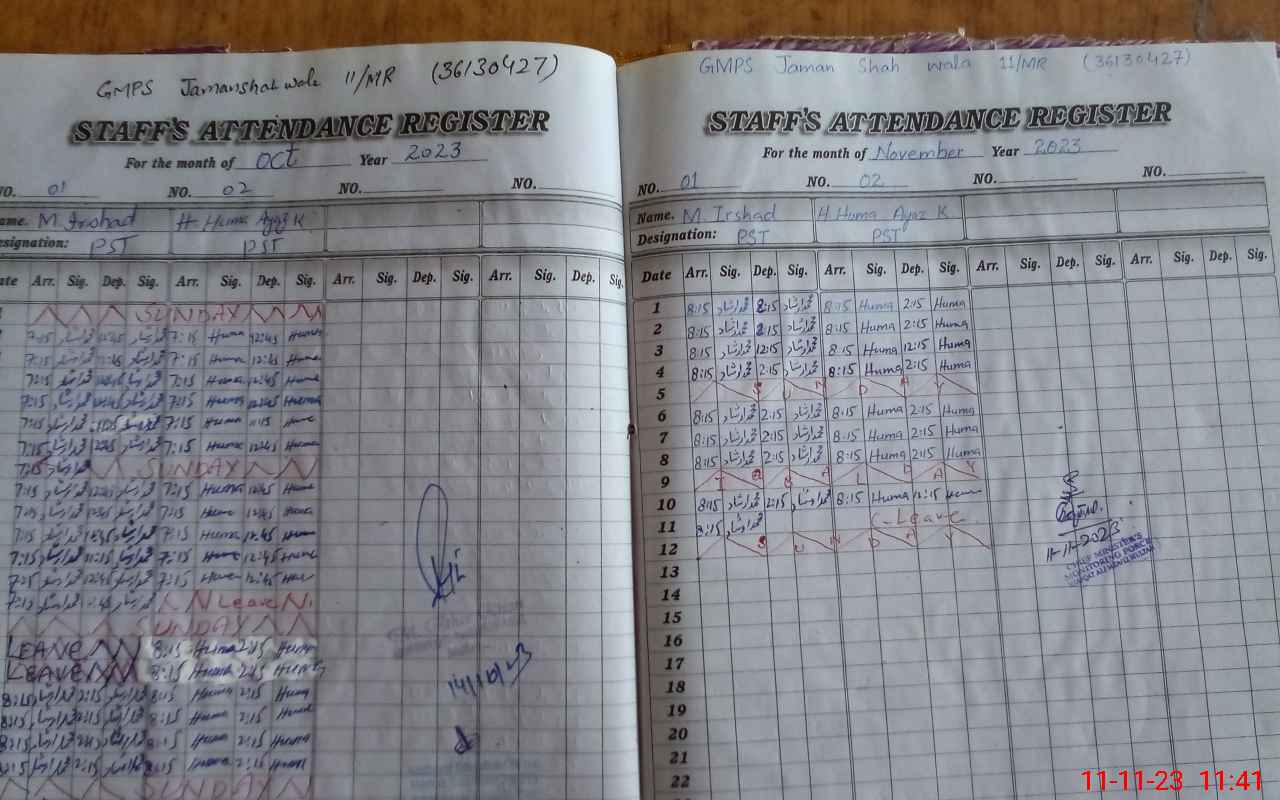 GMPS Jamanshah wala 11/MR (36130427)
STAFF'S ATTENDANCE REGISTER
For the month of Oct Year 2023
NO. 01 NO. 02 NO. NO.
ame. M. Irshad H. Huma Ayaz K
esignation: PST PST
ate Arr. Sig. Dep. Sig. Arr. Sig. Dep. Sig. Arr. Sig. Dep. Sig. Arr. Sig. Dep. Sig.
SUNDAY
7:15 محمد ارشاد 12:45 محمد ارشاد 7:15 Huma 12:45 Huma
7:15 محمد ارشاد 12:45 محمد ارشاد 7:15 Huma 12:45 Huma
7:15 محمد ارشاد 12:45 محمد ارشاد 7:15 Huma 12:45 Huma
7:15 محمد ارشاد 12:45 محمد ارشاد 7:15 Huma 12:45 Huma
7:15 محمد ارشاد محمد ارشاد 7:15 Huma 11:15 Huma
7:15 محمد ارشاد 12:45 محمد ارشاد 7:15 Huma 12:45 Huma
7:15 محمد ارشاد SUNDAY
7:15 محمد ارشاد 12:45 محمد ارشاد 7:15 Huma 12:45 Huma
7:15 محمد ارشاد 12:45 محمد ارشاد 7:15 Huma 12:45 Huma
7:15 محمد ارشاد 12:45 محمد ارشاد 7:15 Huma 12:45 Huma
7:15 محمد ارشاد 11:15 محمد ارشاد 7:15 Huma 12:45 Huma
7:15 محمد ارشاد 12:45 محمد ارشاد 7:15 Huma 12:45 Huma
7:15 محمد ارشاد 12:45 محمد ارشاد Leave
SUNDAY
LEAVE 8:15 Huma 2:15 Huma
LEAVE 8:15 Huma 2:15 Huma
8:15 محمد ارشاد 2:15 محمد ارشاد 8:15 Huma 2:15 Huma
8:15 محمد ارشاد 2:15 محمد ارشاد 8:15 Huma 2:15 Huma
8:15 محمد ارشاد 2:15 محمد ارشاد 8:15 Huma 2:15 Huma
8:15 محمد ارشاد 2:15 محمد ارشاد 8:15 Huma 2:15 Huma
SUNDAY
14/10/23
GMPS Jaman Shah wala 11/MR (36130427)
STAFF'S ATTENDANCE REGISTER
For the month of November Year 2023
NO. 01 NO. 02 NO. NO.
Name. M. Irshad H. Huma Ayaz K
Designation: PST PST
Date Arr. Sig. Dep. Sig. Arr. Sig. Dep. Sig. Arr. Sig. Dep. Sig. Arr. Sig. Dep. Sig.
1 8:15 محمد ارشاد 2:15 محمد ارشاد 8:15 Huma 2:15 Huma
2 8:15 محمد ارشاد 2:15 محمد ارشاد 8:15 Huma 2:15 Huma
3 8:15 محمد ارشاد 12:15 محمد ارشاد 8:15 Huma 12:15 Huma
4 8:15 محمد ارشاد 2:15 محمد ارشاد 8:15 Huma 2:15 Huma
5 SUNDAY
6 8:15 محمد ارشاد 2:15 محمد ارشاد 8:15 Huma 2:15 Huma
7 8:15 محمد ارشاد 2:15 محمد ارشاد 8:15 Huma 2:15 Huma
8 8:15 محمد ارشاد 2:15 محمد ارشاد 8:15 Huma 2:15 Huma
9 DAY
10 8:15 محمد ارشاد 12:15 محمد ارشاد 8:15 Huma 12:15 Huma
11 8:15 محمد ارشاد C-Leave
12 SUNDAY
13
14
15
16
17
18
19
20
21
22
11-11-2023
CHIEF MINISTER'S
MONITORING FORCE
11-11-23 11:41